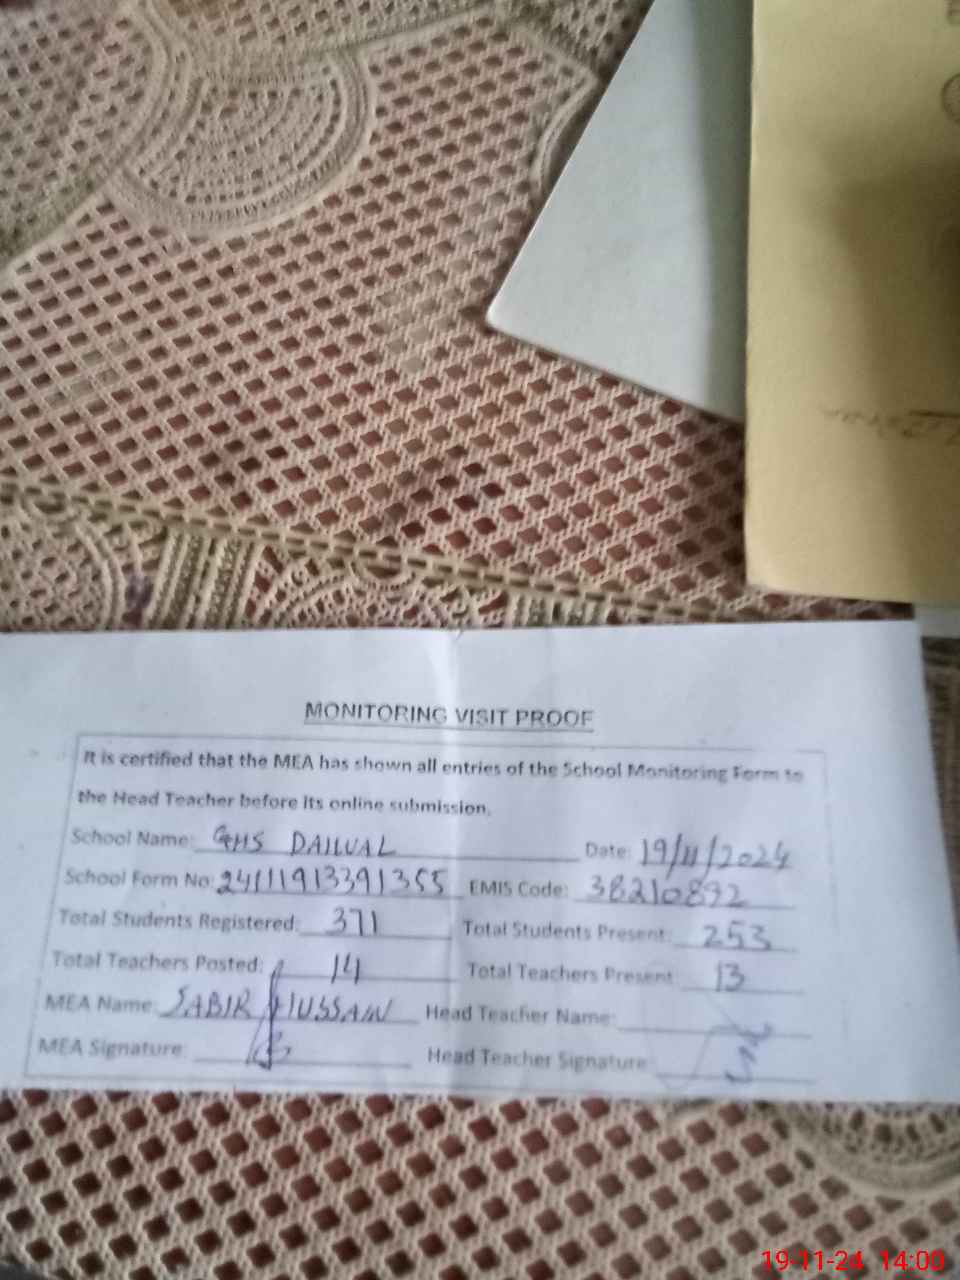 MONITORING VISIT PROOF
It is certified that the MEA has shown all entries of the School Monitoring Form to
the Head Teacher before its online submission.
School Name: GHS DAILUAL Date: 19/11/2024
School Form No: 24111913391355 EMIS Code: 38210892
Total Students Registered: 371 Total Students Present: 253
Total Teachers Posted: 14 Total Teachers Present: 13
MEA Name: SABIR HUSSAIN Head Teacher Name:
MEA Signature: Head Teacher Signature
19-11-24 14:00